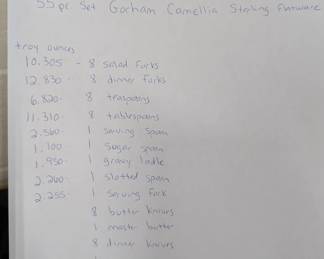 55 pc. Set Gorham Camellia Sterling Flatware
troy ounces
10.305 - 8 salad forks
12.830 - 8 dinner forks
6.820 - 8 teaspoons
11.310 - 8 tablespoons
2.560 - 1 serving spoon
1.100 1 sugar spoon
1.950 - 1 gravy ladle
2.260 - 1 slotted spoon
2.255 - 1 serving fork
8 butter knives
1 master butter
8 dinner knives